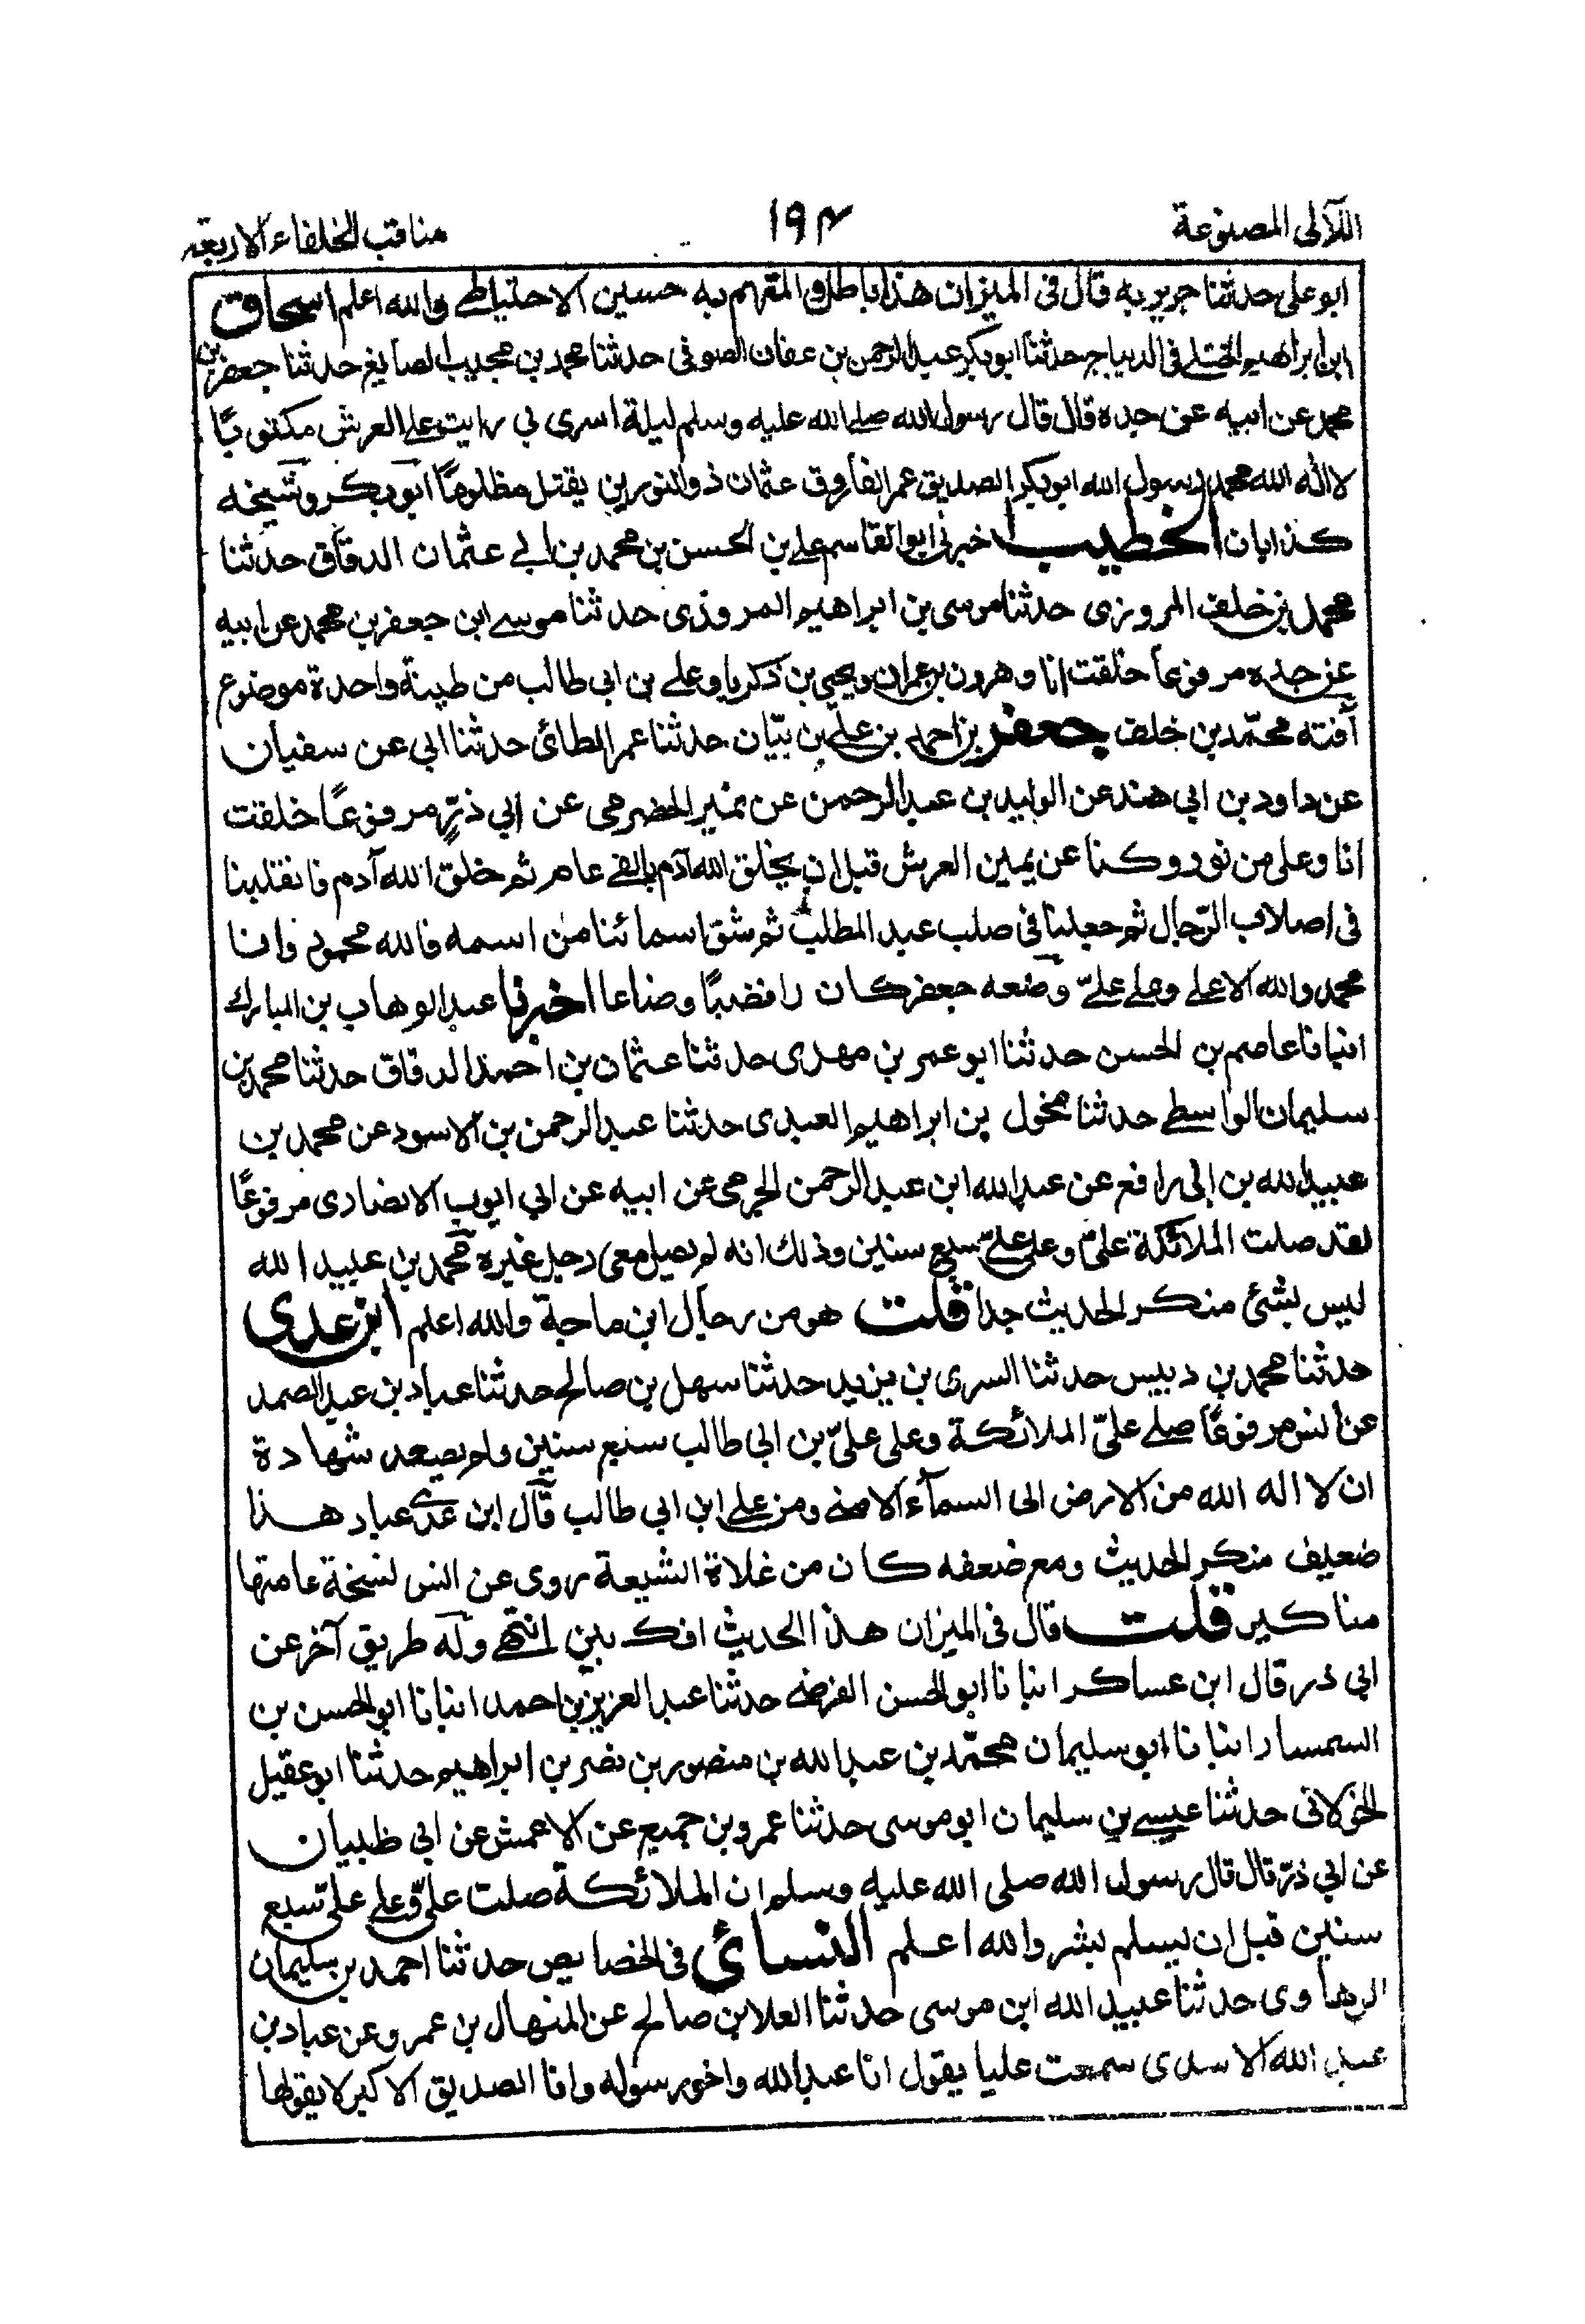 اللآلى المصنوعة
١٩٣
مناقب الخلفاء الاربعة
ابو على حدثنا جرير به قال فى الميزان هذا باطل والمتهم به حسين الاحتياطى والله اعلم اسحاق
ابن ابراهيم الختلى فى الديباج حدثنا ابو بكر عبد الرحمن بن عفان الصوفى حدثنا محمد بن مجيب الصايغ حدثنا جعفر بن
محمد عن ابيه عن جده قال قال رسول الله صلى الله عليه وسلم ليلة اسرى بى رايت على العرش مكتوبًا
لا اله الا الله محمد رسول الله ابو بكر الصديق عمر الفاروق عثمان ذو النورين يقتل مظلومًا ابو بكر وشيخه
كذابان الخطيب اخبرنى ابو القاسم على بن الحسن بن محمد بن ابى عثمان الدقاق حدثنا
محمد بن خلف المروزى حدثنا موسى بن ابراهيم المروذى حدثنا موسى ابن جعفر بن محمد عن ابيه
عن جده مرفوعاً خلقت انا وهرون بن عمران ويحيى بن ذكريا وعلى بن ابى طالب من طينة واحدة موضوع
آفته محمّد بن خلف جعفر بن احمد بن على بن بيّان حدثنا عمر الطائى حدثنا ابى عن سفيان
عن داود بن ابى هند عن الوليد بن عبد الرحمن عن نمير الحضرمى عن ابي ذرّ مرفوعًا خلقت
انا وعلى من نور وكنا عن يمين العرش قبل ان يخلق الله آدم بالفى عام ثم خلق الله آدم فانقلبنا
فى اصلاب الرّجال ثم جعلنا فى صلب عبد المطلب ثم شق اسمائنا من اسمه فالله محمود وانا
محمد والله الاعلى وعلى علىّ وضعه جعفر كان رافضيًا وضاعا اخبرنا عبد الوهاب بن المبارك
انبانا عاصم بن الحسن حدثنا ابو عمر بن مهدى حدثنا عثمان بن احمد الدقاق حدثنا محمد بن
سليمان الواسطى حدثنا مخول بن ابراهيم العبدى حدثنا عبد الرحمن بن الاسود عن محمد بن
عبيد الله بن ابى رافع عن عبد الله ابن عبد الرحمن الجرمى عن ابيه عن ابي ايوب الانصارى مرفوعًا
لقد صلت الملائكة علىّ وعلى علىّ سبع سنين وذلك انه لم يصل معى رجل غيره محمد بن عبيد الله
ليس بشئ منكر الحديث جدا قلت هو من رجال ابن ماجة والله اعلم ابن عدى
حدثنا محمد بن دبيس حدثنا السرى بن يزيد حدثنا سهل بن صالح حدثنا عباد بن عبد الصمد
عن انس مرفوعًا صلى علىّ الملائكة وعلى علىّ بن ابى طالب سبع سنين ولم يصعد شهادة
ان لا اله الا الله من الارض الى السمآء الا منى ومن على ابن ابى طالب قال ابن عدى عباد هذا
ضعيف منكر الحديث ومع ضعفه كان من غلاة الشيعة روى عن انس نسخة عامتها
مناكير قلت قال فى الميزان هذا الحديث افك بين انتهى وله طريق آخر عن
ابى ذر قال ابن عساكر انبانا ابو الحسن الفرضى حدثنا عبد العزيز بن احمد انبانا ابو الحسن بن
السمسار انبانا ابو سليمان محمّد بن عبد الله بن منصور بن نصر بن ابراهيم حدثنا ابو عقيل
الخولانى حدثنا عيسى بن سليمان ابو موسى حدثنا عمرو بن جميع عن الاعمش عن ابى ظبيان
عن ابي ذرّ قال قال رسول الله صلى الله عليه وسلم ان الملائكة صلت علىّ وعلى علىّ سبع
سنين قبل ان يسلم بشر والله اعلم النسائى فى الخصايص حدثنا احمد بن سليمان
الرهاوى حدثنا عبيد الله ابن موسى حدثنا العلا بن صالح عن المنهال بن عمرو عن عباد بن
عبد الله الاسدى سمعت عليا يقول انا عبد الله واخو رسوله وانا الصديق الاكبر لا يقولها